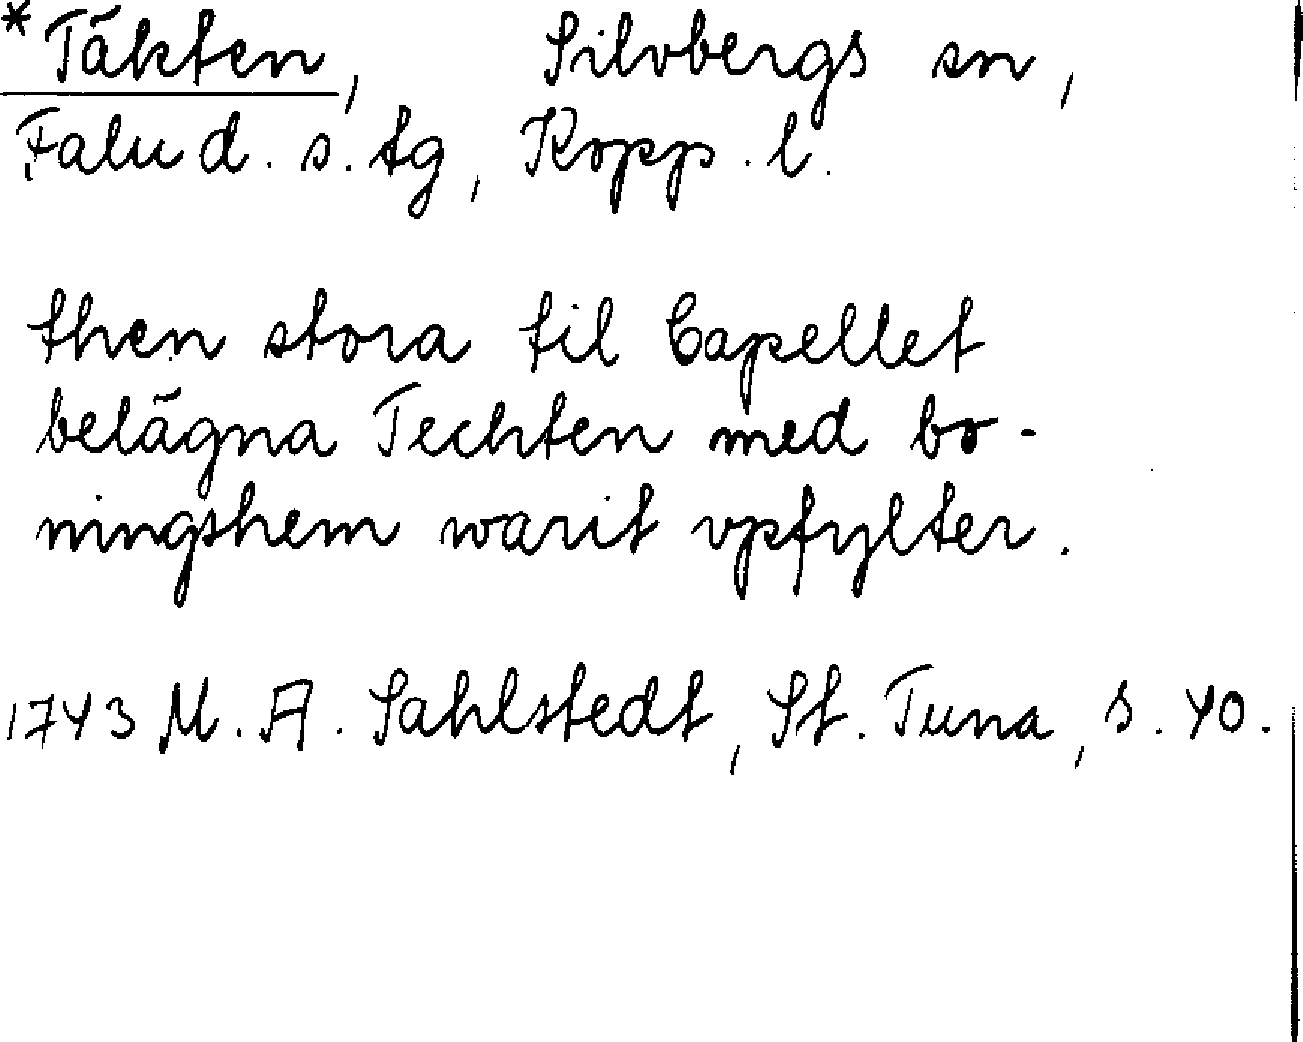 *Täkten, Silvbergs sn,
Falu d. s. tg, Kopp. l.
then stora til Capellet
belägna Techten med bo-
ningshem warit vpfylter.
1743 M. A. Sahlstedt, St. Tuna, s. 40.